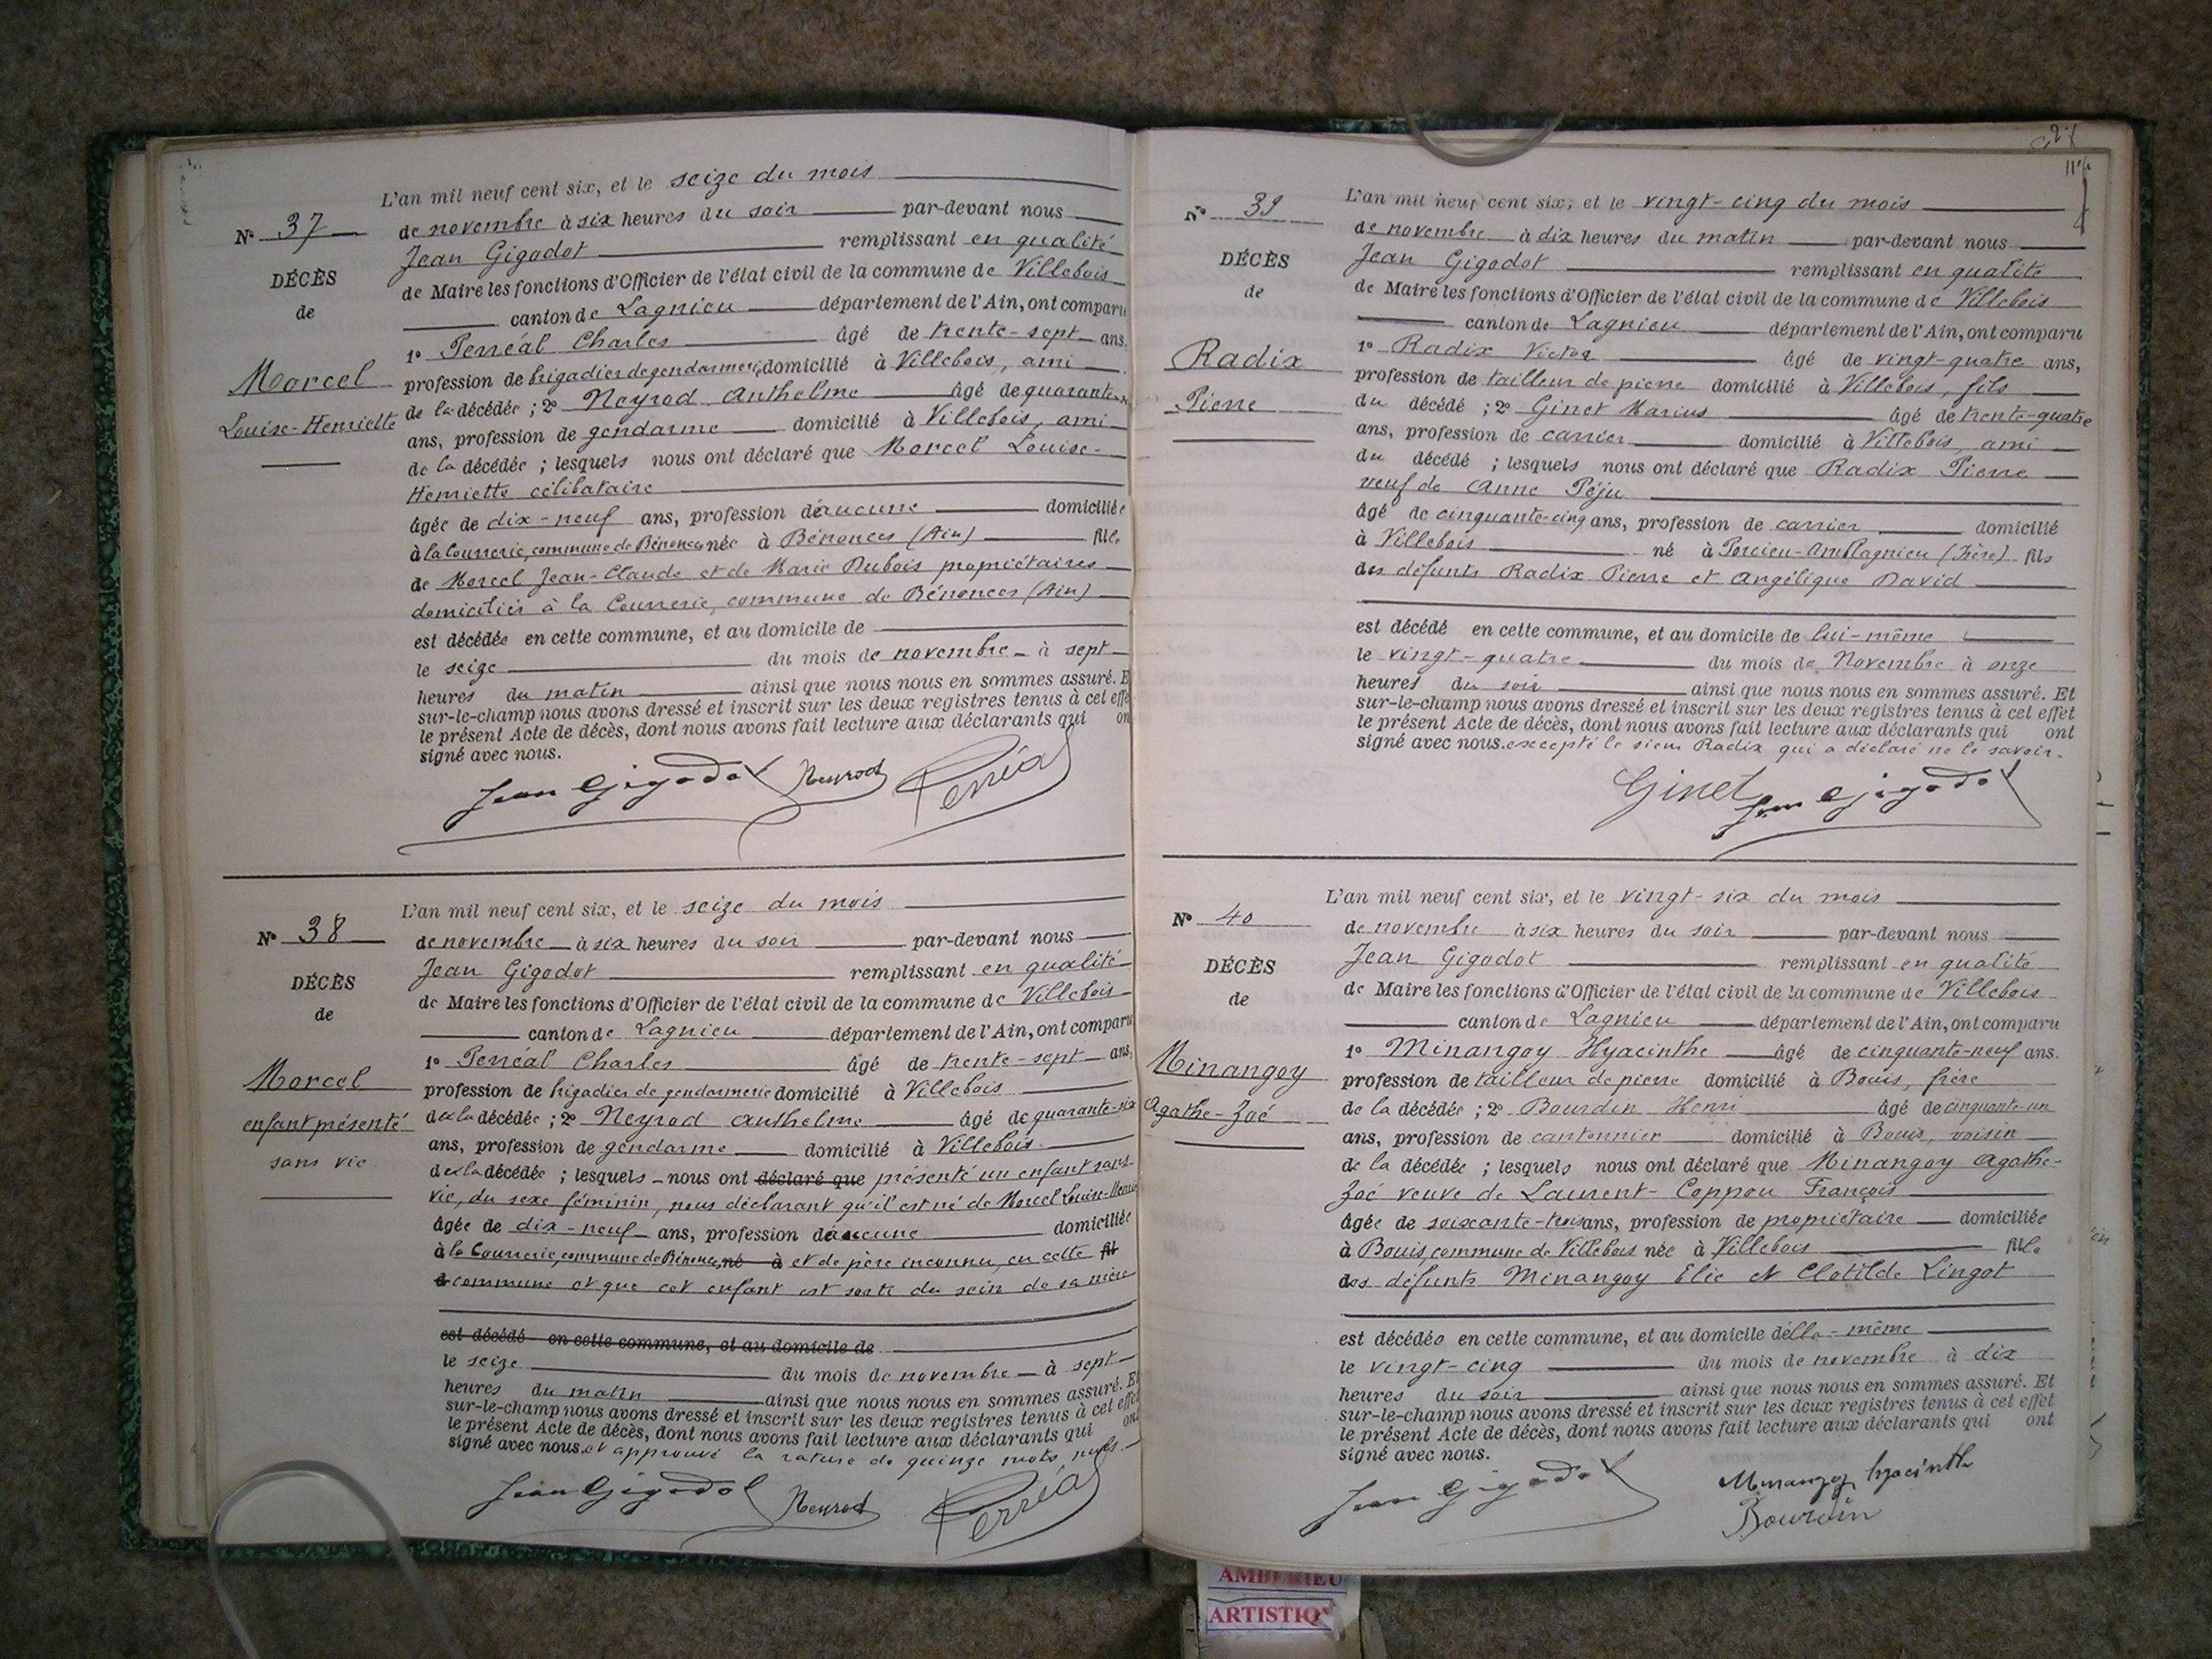 L'an mil neuf cent six, et le seize du mois
N° 37
de novembre à six heures du soir par-devant nous
Jean Gigodot remplissant en qualité
DÉCÈS
de Maire les fonctions d'Officier de l'état civil de la commune de Villebois
de
canton de Lagnieu département de l'Ain, ont comparu
1° Perréal Charles âgé de trente-sept ans,
Morcel
profession de brigadier de gendarmerie domicilié à Villebois, ami
Louise-Henriette
de la décédée ; 2° Neyrod Anthelme âgé de quarante-
ans, profession de gendarme domicilié à Villebois, ami
de la décédée ; lesquels nous ont déclaré que Morcel Louise-
Henriette célibataire
âgée de dix-neuf ans, profession d'aucune domiciliée
à la Courrerie, commune de Bénonces née à Bénonces (Ain) fille
de Morcel Jean-Claude et de Marie Dubois propriétaires
domiciliés à la Courrerie, commune de Bénonces (Ain)
est décédée en cette commune, et au domicile de
le seize du mois de novembre à sept
heures du matin ainsi que nous nous en sommes assuré. E
sur-le-champ nous avons dressé et inscrit sur les deux registres tenus à cet effe
le présent Acte de décès, dont nous avons fait lecture aux déclarants qui on
signé avec nous.
Jean Gigodot Neyrod Perréal
L'an mil neuf cent six, et le seize du mois
N° 38
de novembre à six heures du soir par-devant nous
Jean Gigodot remplissant en qualité
DÉCÈS
de Maire les fonctions d'Officier de l'état civil de la commune de Villebois
de
canton de Lagnieu département de l'Ain, ont comparu
1° Perréal Charles âgé de trente-sept ans,
Morcel
profession de brigadier de gendarmerie domicilié à Villebois
enfant présenté
de la décédée ; 2° Neyrod Anthelme âgé de quarante-six
sans vie
ans, profession de gendarme domicilié à Villebois
de la décédée ; lesquels nous ont déclaré que présenté un enfant sans
vie, du sexe féminin, nous déclarant qu'il est né de Morcel Louise-Henriette
âgée de dix-neuf ans, profession d'aucune domiciliée
à la Courrerie, commune de Bénonces, né à et de père inconnu, en cette fil
d commune et que cet enfant est sorti du sein de sa mère
est décédé en cette commune, et au domicile de
le seize du mois de novembre à sept
heures du matin ainsi que nous nous en sommes assuré. Et
sur-le-champ nous avons dressé et inscrit sur les deux registres tenus à cet effet
le présent Acte de décès, dont nous avons fait lecture aux déclarants qui ont
signé avec nous, et approuvé la rature de quinze mots nuls.
Jean Gigodot Neyrod Perréal
L'an mil neuf cent six, et le vingt-cinq du mois
N° 39
de novembre à dix heures du matin par-devant nous
Jean Gigodot remplissant en qualité
DÉCÈS
de Maire les fonctions d'Officier de l'état civil de la commune de Villebois
de
canton de Lagnieu département de l'Ain, ont comparu
1° Radix Victor âgé de vingt-quatre ans,
Radix
profession de tailleur de pierre domicilié à Villebois, fils
Pierre
du décédé ; 2° Ginet Marius âgé de trente-quatre
ans, profession de carrier domicilié à Villebois, ami
du décédé ; lesquels nous ont déclaré que Radix Pierre
veuf de Anne Péju
âgé de cinquante-cinq ans, profession de carrier domicilié
à Villebois né à Porcieu-Amblagnieu (Isère) fils
des défunts Radix Pierre et Angélique David
est décédé en cette commune, et au domicile de lui-même
le vingt-quatre du mois de Novembre à onze
heures du soir ainsi que nous nous en sommes assuré. Et
sur-le-champ nous avons dressé et inscrit sur les deux registres tenus à cet effet
le présent Acte de décès, dont nous avons fait lecture aux déclarants qui ont
signé avec nous. excepté le sieur Radix qui a déclaré ne le savoir.
Ginet Jean Gigodot
L'an mil neuf cent six, et le vingt-six du mois
N° 40
de novembre à six heures du soir par-devant nous
Jean Gigodot remplissant en qualité
DÉCÈS
de Maire les fonctions d'Officier de l'état civil de la commune de Villebois
de
canton de Lagnieu département de l'Ain, ont comparu
1° Minangoy Hyacinthe âgé de cinquante-neuf ans.
Minangoy
profession de tailleur de pierre domicilié à Bouis, frère
Agathe-Zoé
de la décédée ; 2° Bourdin Henri âgé de cinquante-un
ans, profession de cantonnier domicilié à Bouis, voisin
de la décédée ; lesquels nous ont déclaré que Minangoy Agathe-
Zoé veuve de Laurent-Coppou François
âgée de soixante-trois ans, profession de propriétaire domiciliée
à Bouis, commune de Villebois née à Villebois fille
des défunts Minangoy Elie et Clotilde Lingot
est décédée en cette commune, et au domicile d'elle-même
le vingt-cinq du mois de novembre à dix
heures du soir ainsi que nous nous en sommes assuré. Et
sur-le-champ nous avons dressé et inscrit sur les deux registres tenus à cet effet
le présent Acte de décès, dont nous avons fait lecture aux déclarants qui ont
signé avec nous.
Jean Gigodot Minangoy hyacinthe
Bourdin
AMBERIEU
ARTISTIQ